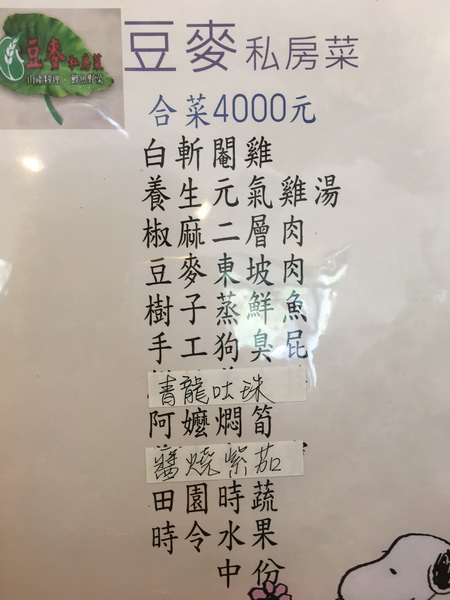 豆麥私房菜
山產料理・鱻魚野菜
豆麥私房菜
合菜4000元
白斬閹雞
養生元氣雞湯
椒麻二層肉
豆麥東坡肉
樹子蒸鮮魚
手工狗臭屁
青龍吐珠
阿嬤燜筍
醬燒紫茄
田園時蔬
時令水果
中份